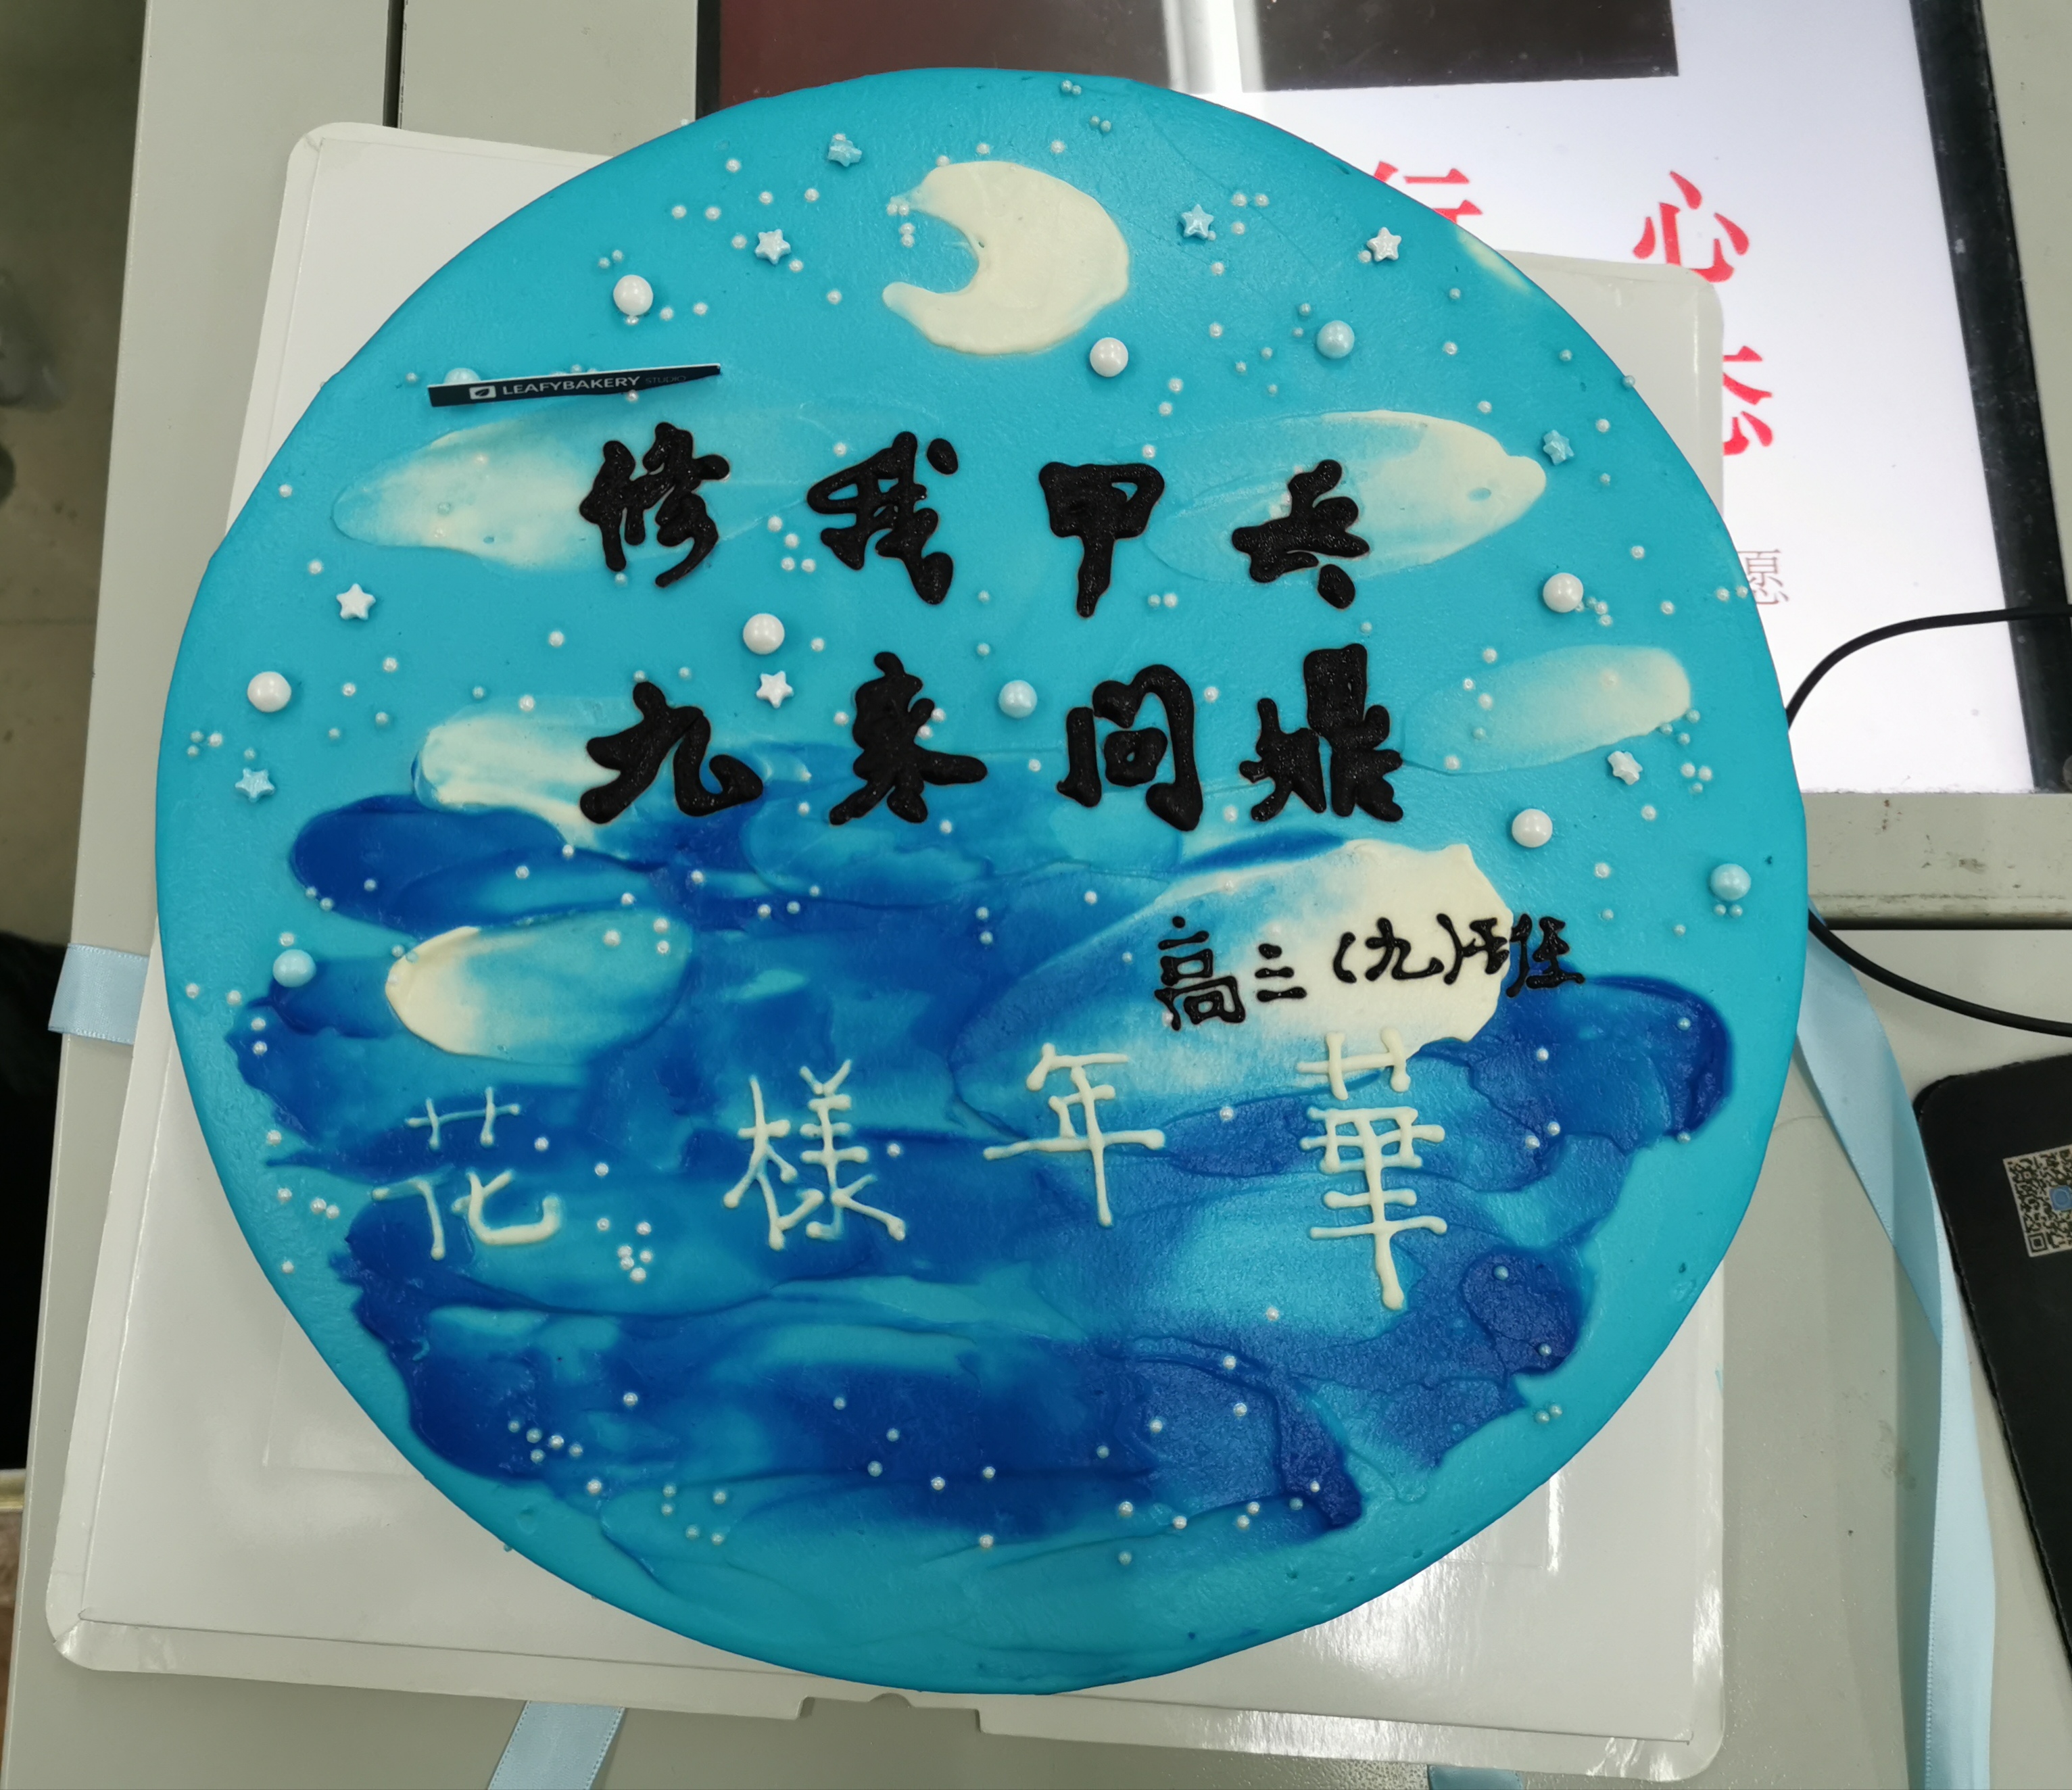 LEAFYBAKERY STUDIO
修我甲兵
九来问鼎
高三(九)班
花樣年華
心态